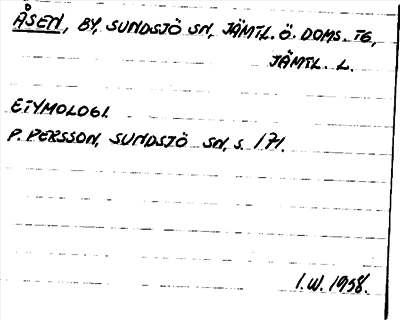 ÅSEN, BY, SUNDSJÖ SN, JÄMTL. Ö. DOMS. TG,
JÄMTL. L.
ETYMOLOGI.
P. PERSSON, SUNDSJÖ SN, S. 171.
I.W. 1958.